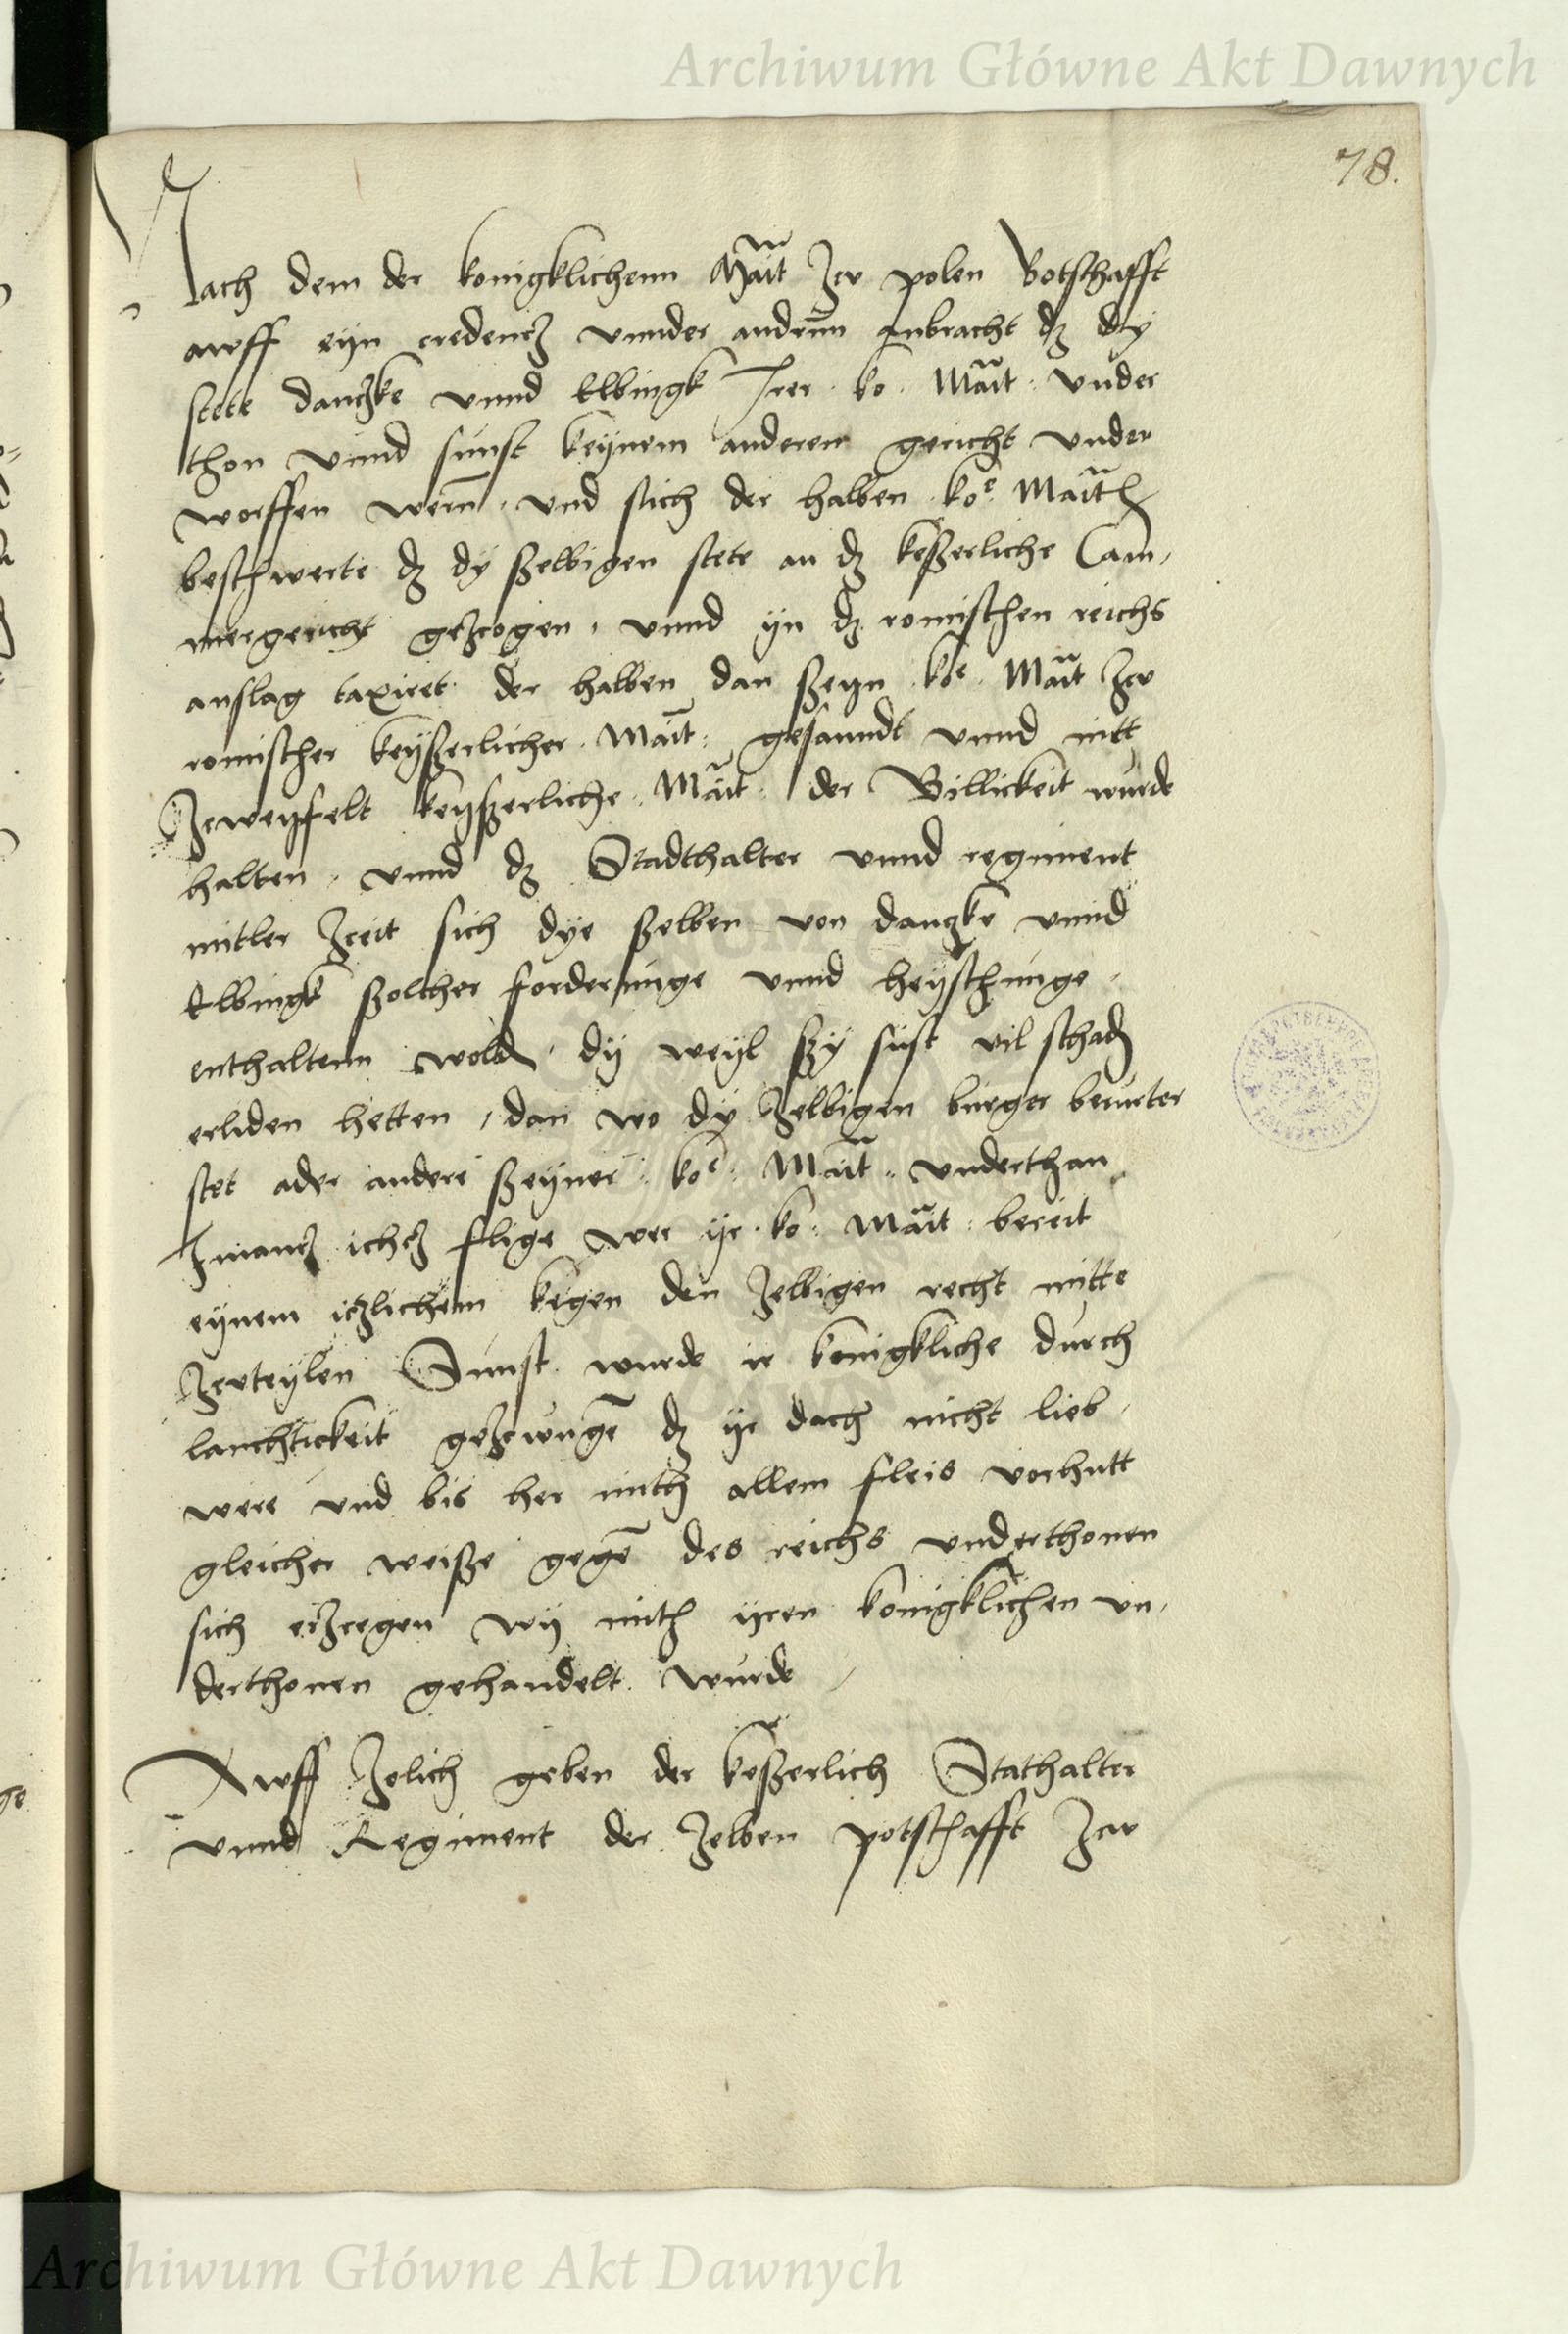 Archiwum Główne Akt Dawnych
78.
Nach dem der konigklichenn Mait Zcw polen Botschafft
awff eyn credencz vnnder andrnn anbracht dz dy
stete danczke vnnd Elbingk Irer ko. Mait. vnder
thon vnnd sunst keynem anderen gericht vnder
worffen wern. vnd sich der halben koe. Mait
beschwerte dz dy sselbigen stete an dz kesserliche Cam,
mergericht geczogen, vnnd yn dz romischen reichs
anslag taxiret der halben dan sseyn koe. Mait Zcw
romischer keysserlicher Mait: gesanndt vnnd nitt
Zcweyfelt keysserliche Mait. der Billickeit wurde
halten, vnnd dz Stadthalter vnnd regiment
mitler Zceit sich dye sselben von danczke vnnd
Elbingk ssolcher forderunge vnnd heyschunge,
enthaltenn wold, dy weyl sy sust vil schad
erliden hetten, dan wo dy Zelbigen burger berurter
stet ader andere sseyner koe. Mait. vnderthan
Imancz ichcz flige wer yr ko. Mait: bereit
eynem iczlichem kegen den Zelbigen recht mitte
Zcwteylen Sunst wurde ir konigkliche durch
lauchtickeit geczwunge dz yr doch nicht lieb,
were vnd bis her mith allem fleis vorhutt
gleicher weisse gege des reichs vnderthonen
sich erczegen wy mith yren konigklichen vn,
derthonen gehandelt wurde
Awff Zolich geben der kesserlich Stathalter
vnnd Regiment der Zelben potschafft Zcw
Archiwum Główne Akt Dawnych